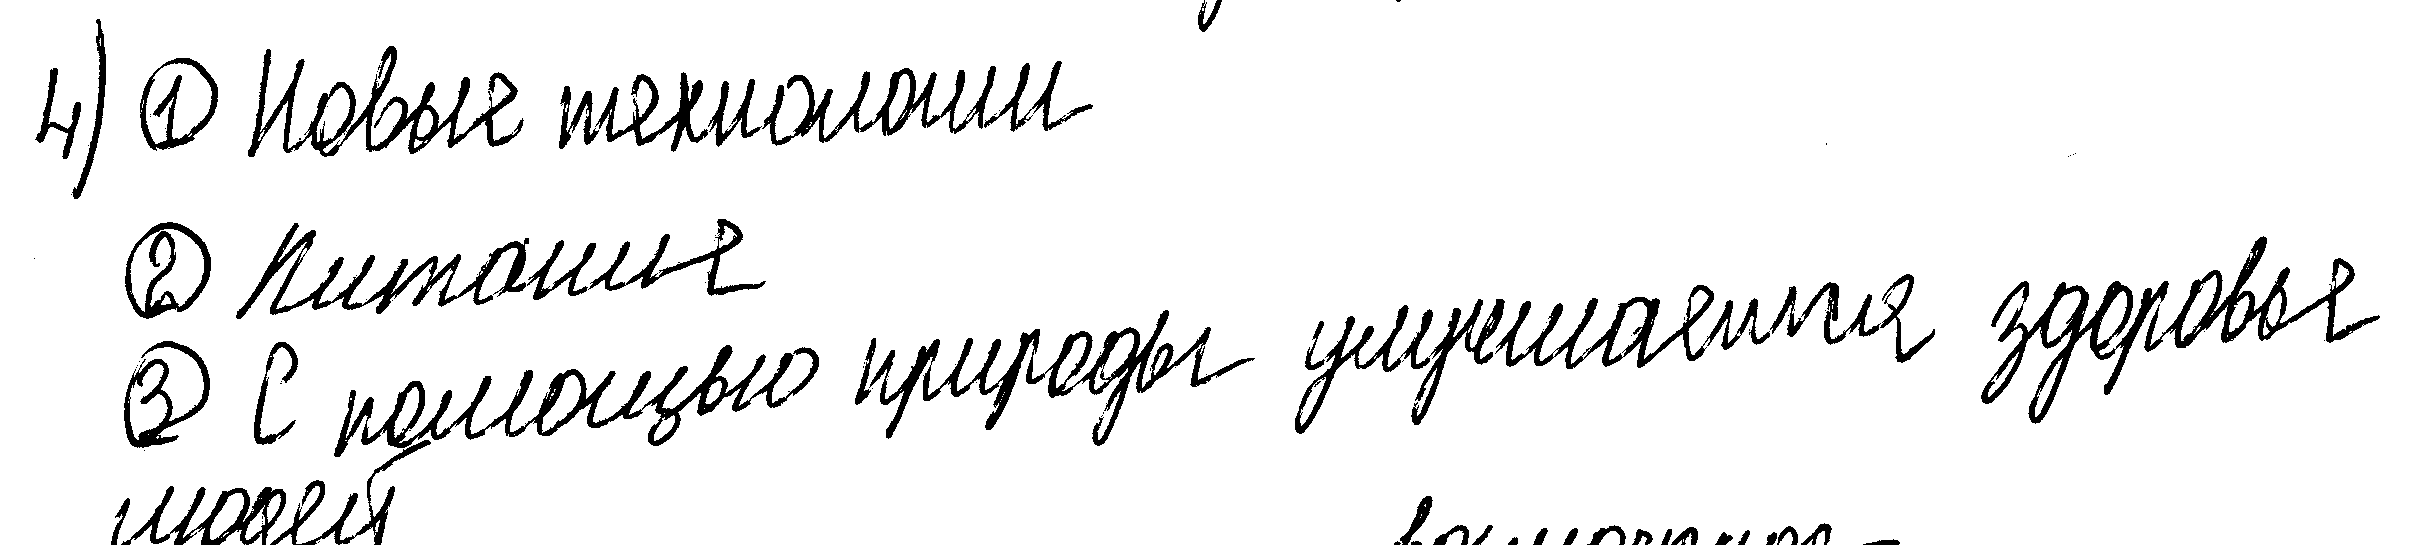 4) ① Новые технологии
② Питание
③ С помощью природы улучшается здоровье
людей